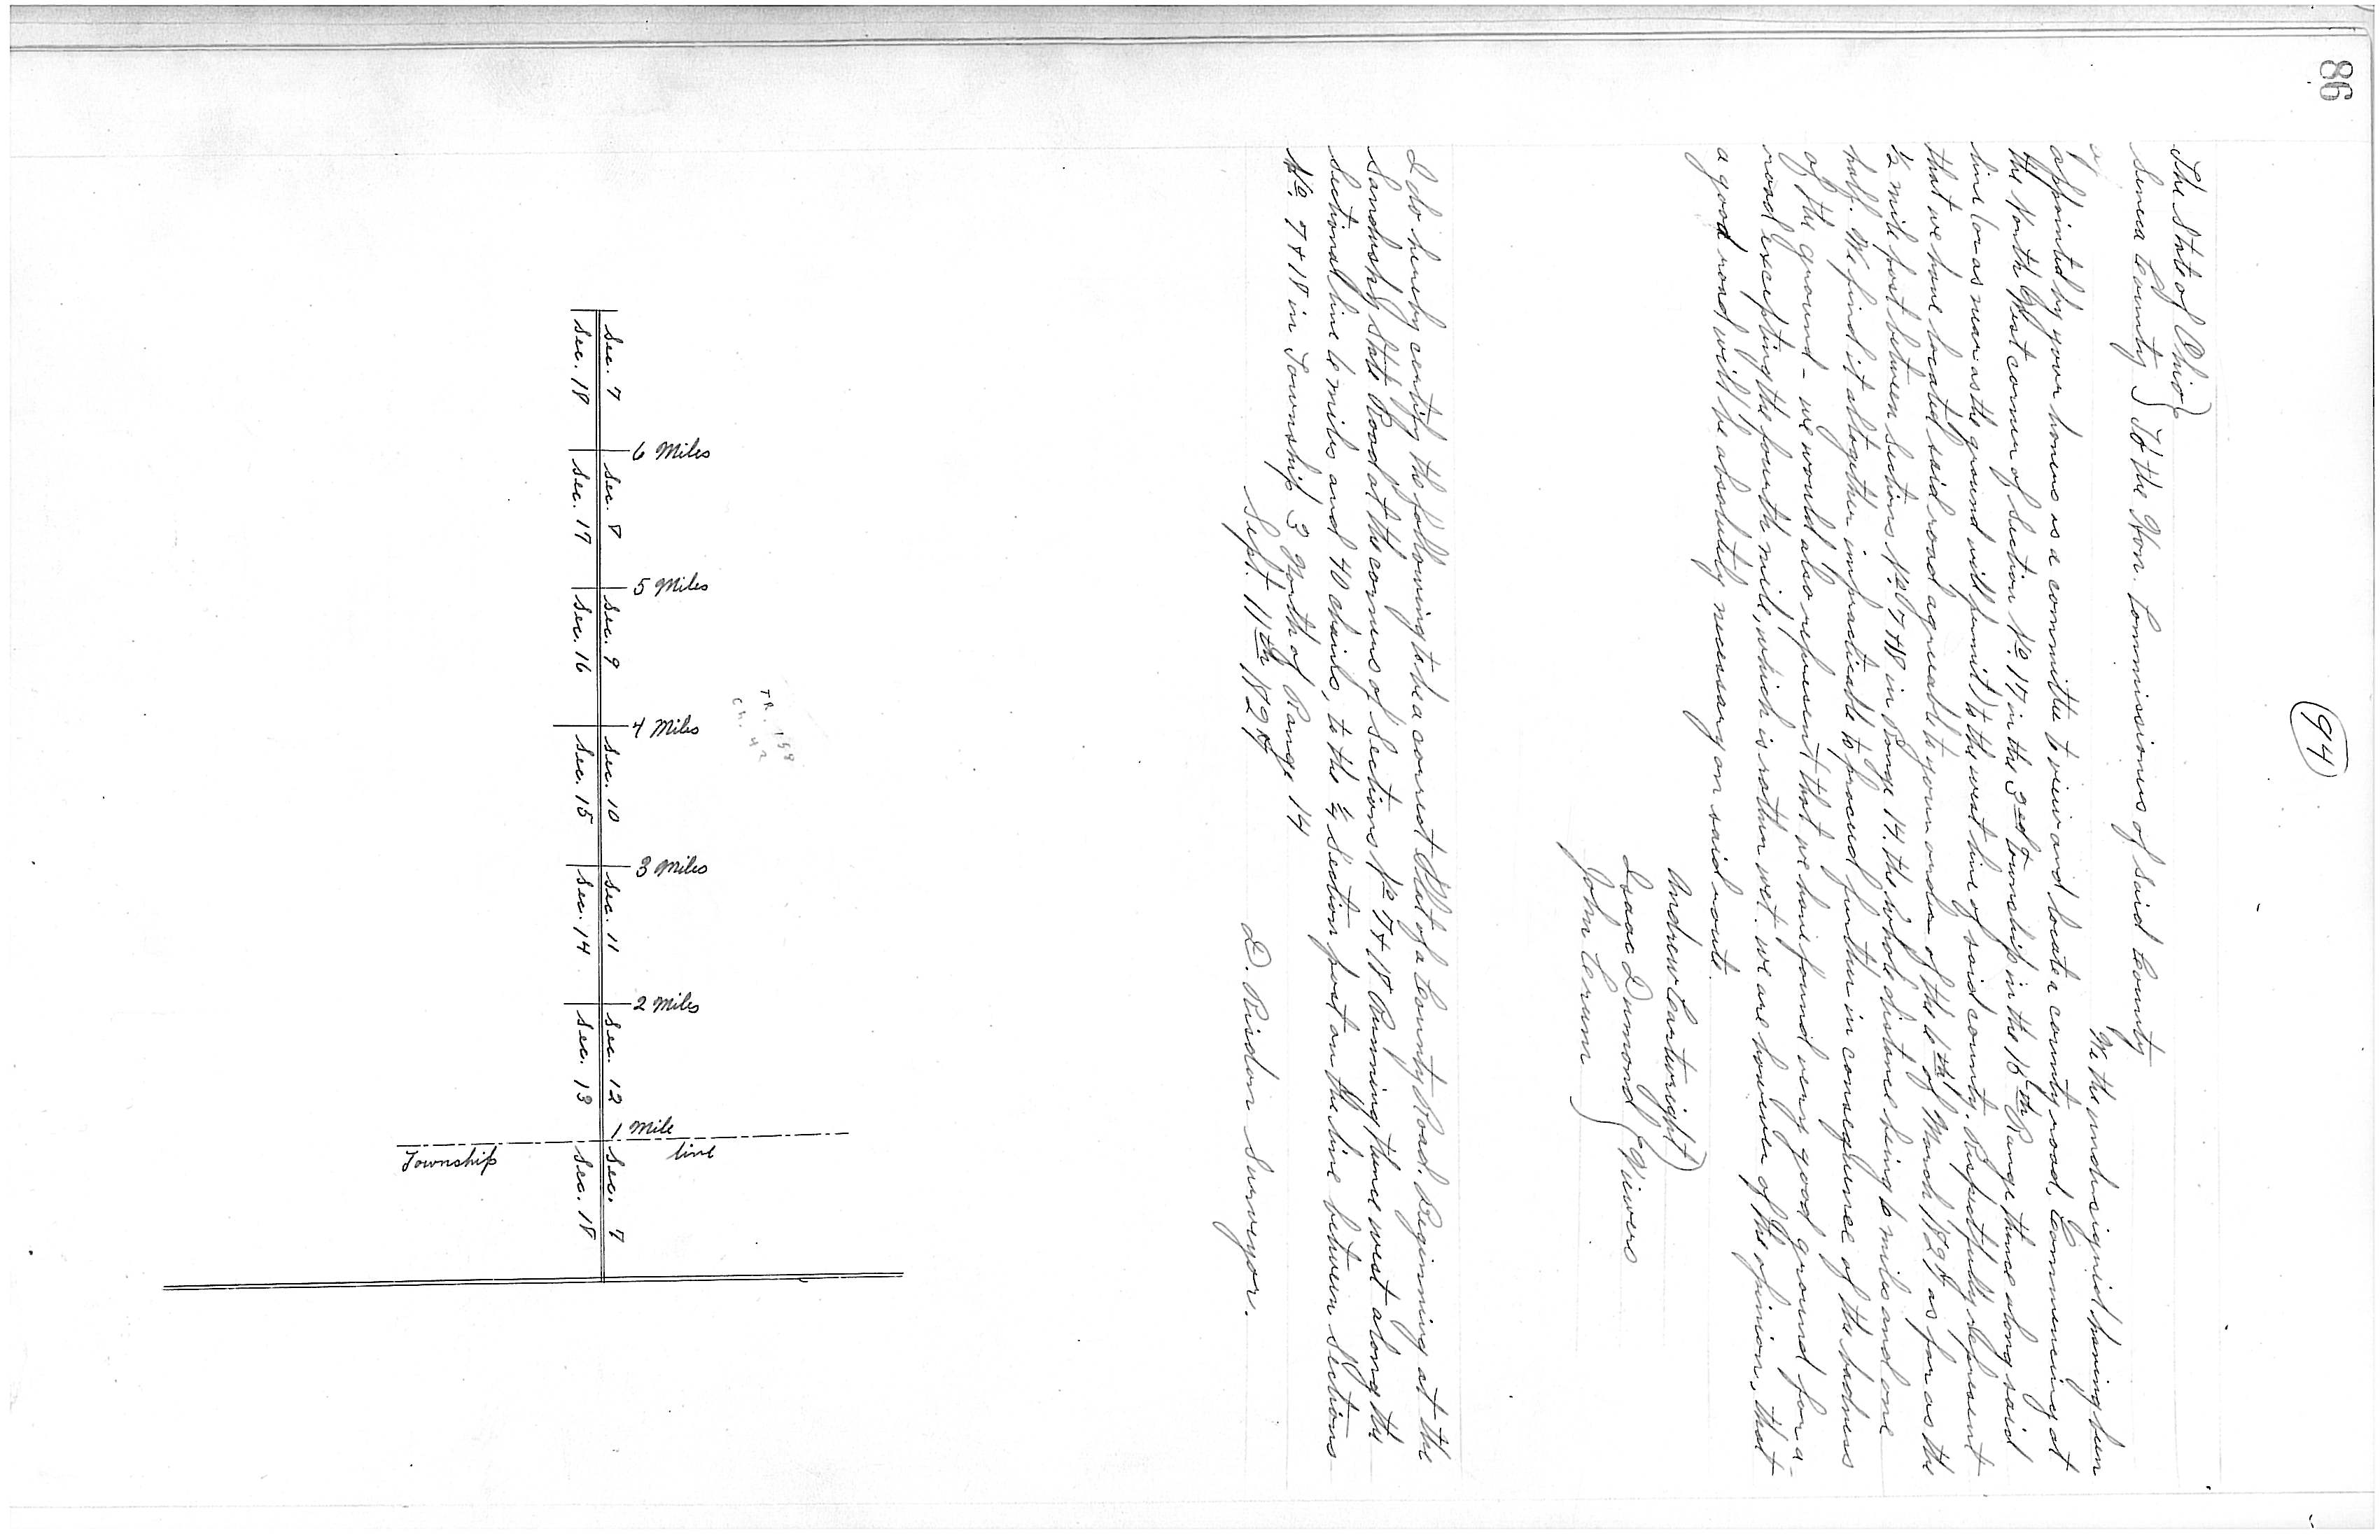 86
94
The State of Ohio }
Seneca County } To the Hon. Commissioners of said County
We the undersigned having been
appointed by your honors as a committee to view and locate a county road, Commencing at
the North West corner of Section No. 17 in the 3ed township in the 16th Range thence along said
line (or as near as the ground will permit) to the west line of said county. Respectfully represent
that we have located said road agreeable to your order of the 6th of March 1829 as far as the
½ mile post between Sections No. 7 & 18 in Range 14. the whole distance being 6 miles and one
half. We find it altogether impracticable to proceed further in consequence of the badness
of the ground - we would also represent that we have found very good ground for a
road excepting the fourth mile, which is rather wet. we are however of the opinion, that
a good road will be absolutely necessary on said route.
Andrew Cartwright }
Isaac Dumond } Viewers
John Cerum }
I do hereby certify the following to be a correct Plat of a County Road. Beginning at the
Sandusky State Road at the corners of Sections No. 7 & 18 Running thence west along the
Sectional line 6 miles and 40 chains, to the ¼ Section post on the line between Sections
No. 7 & 18 in Township 3 North of Range 14
Sept. 11th 1829
D. Risdon Surveyor.
TR. 158
Ch. 42
Sec. 7
Sec. 18
6 Miles
Sec. 8
Sec. 17
5 Miles
Sec. 9
Sec. 16
4 Miles
Sec. 10
Sec. 15
3 Miles
Sec. 11
Sec. 14
2 Miles
Sec. 12
Sec. 13
1 Mile
Township line
Sec. 7
Sec. 18